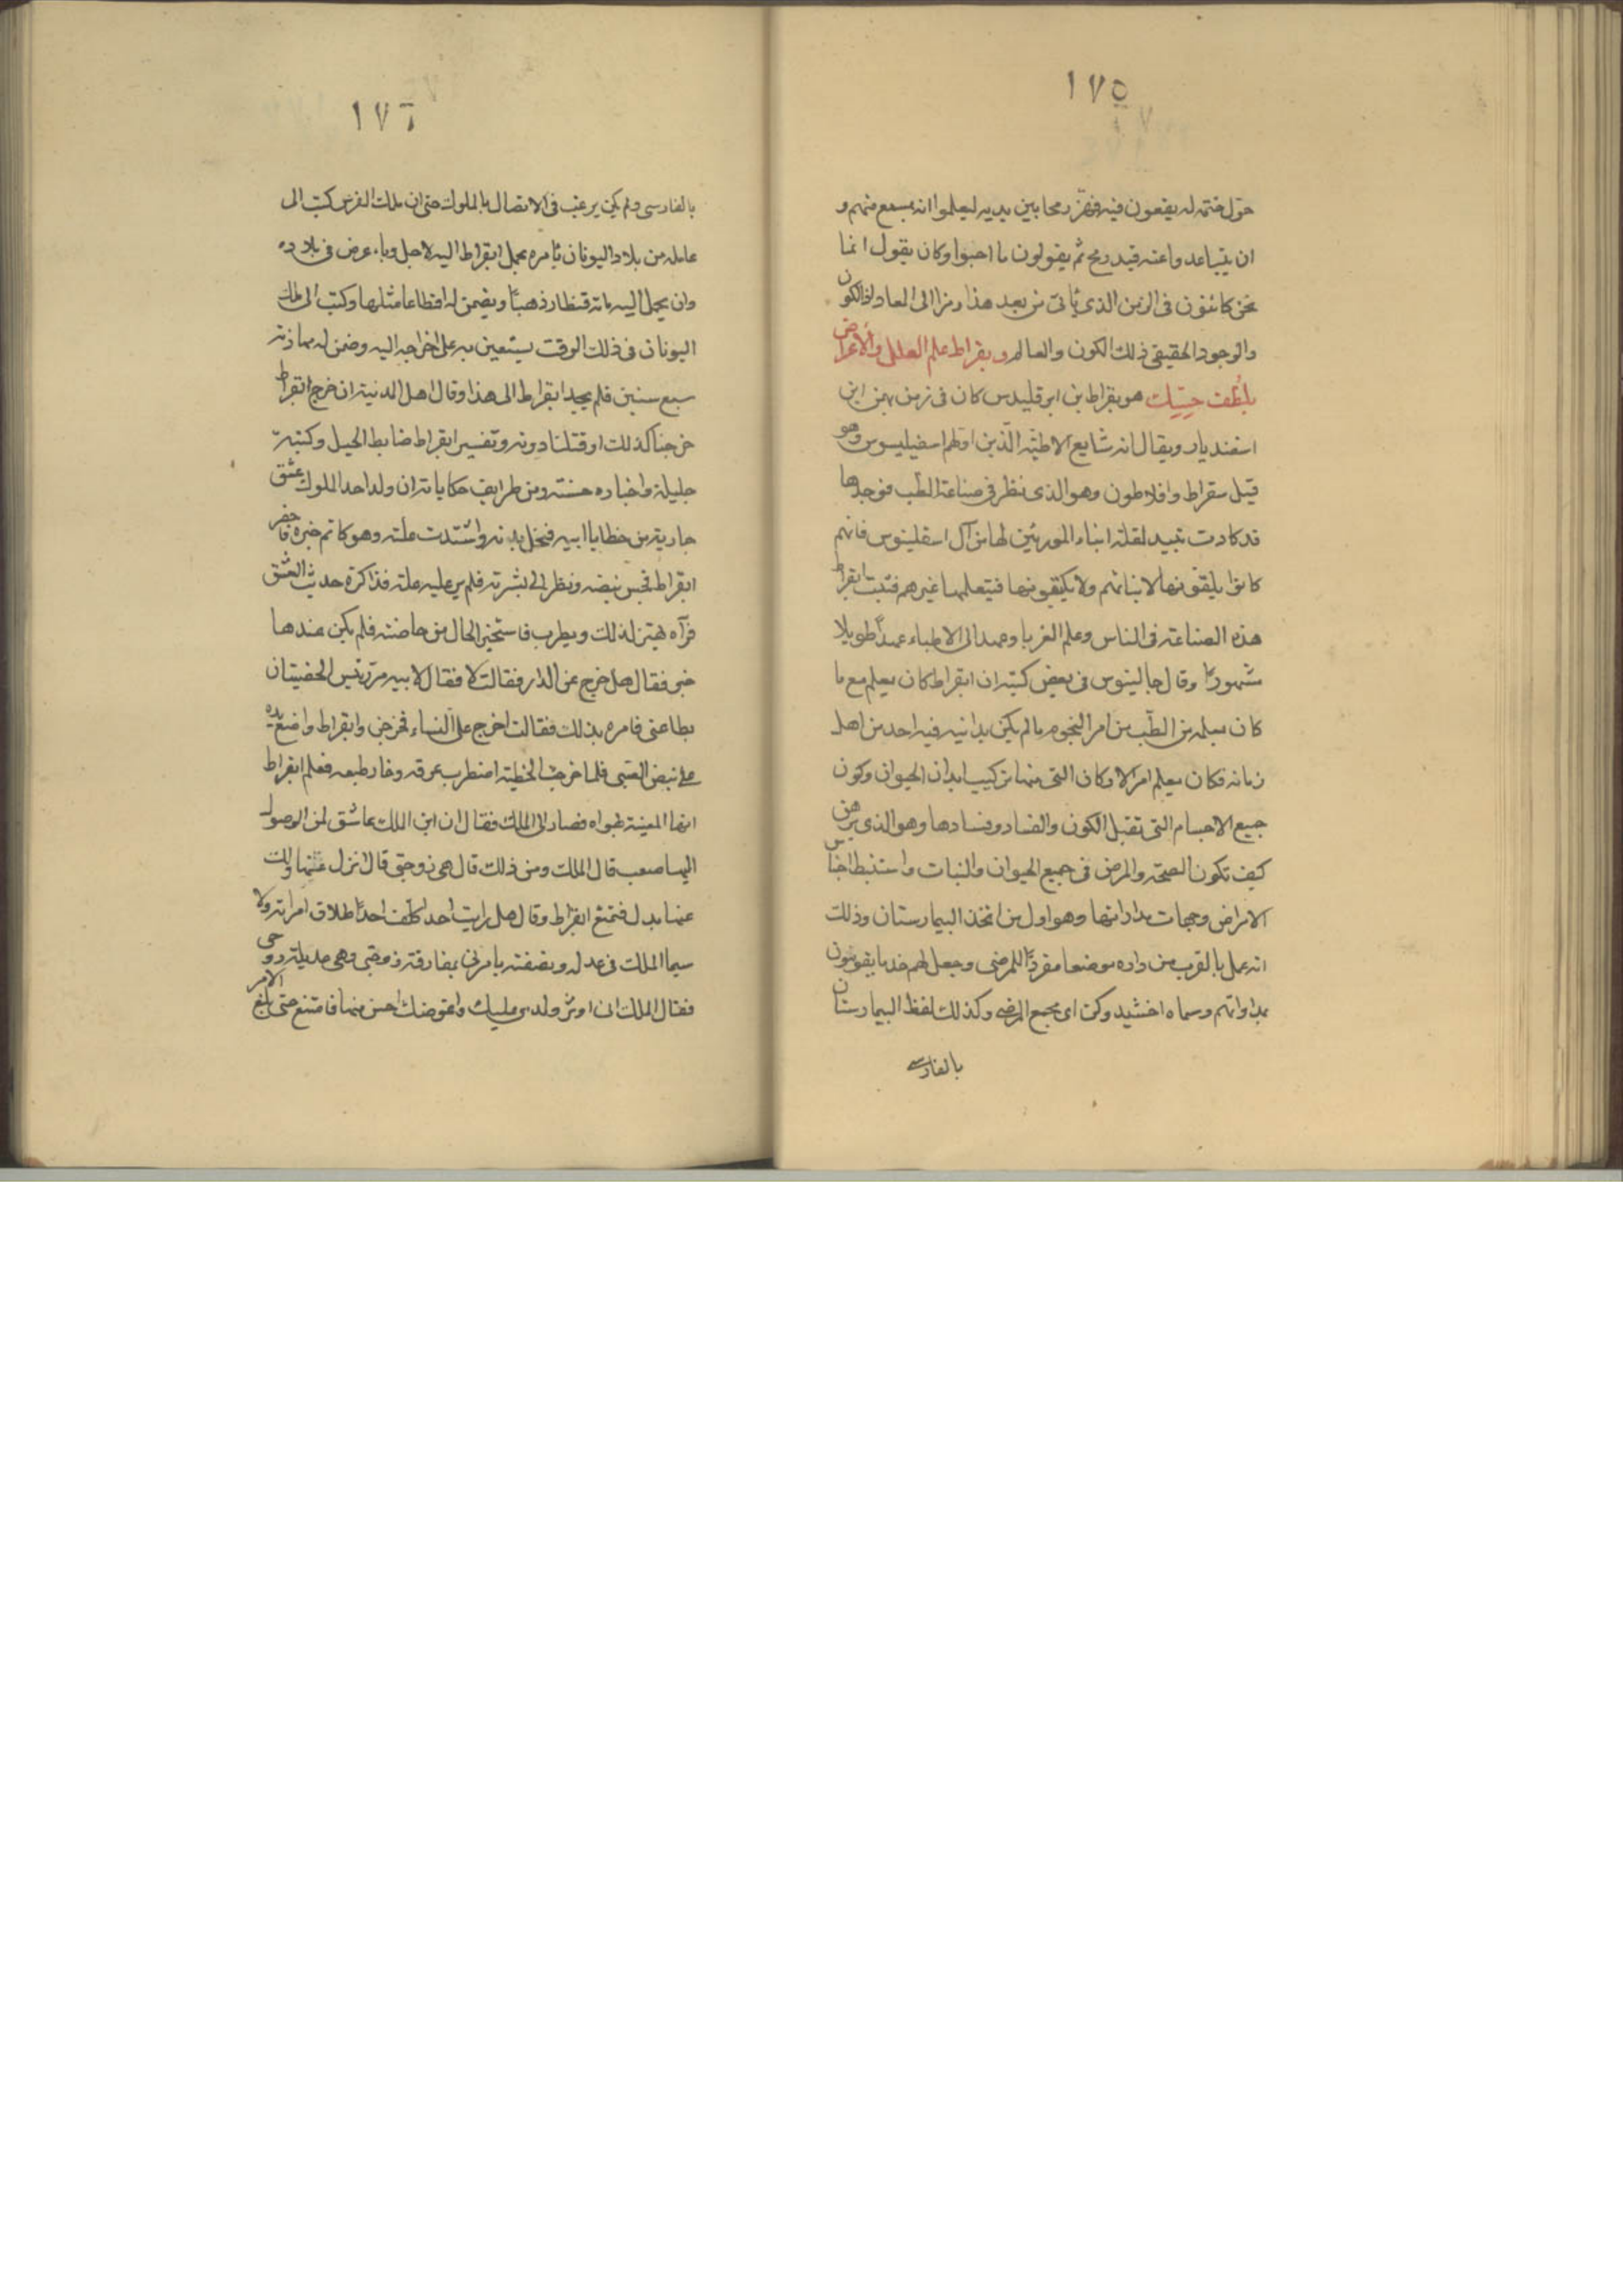 ١٧٥
حول ختمه له يقعون فيه فهز رمحا بين يديه ليعلموا انه يسمع منهم و
ان يتباعدوا عنه قيد رمح ثم يقولون ما احبوا وكان يقول انما
نحن كائنون فى الزمن الذى يأتى من بعد هذا رمزا الى المعاد اذ الكون
والوجود الحقيقى ذلك الكون والعالم وبقراط علم العلل والأعراض
بلُطف حِسِّك هو بقراط بن ابرقليدس كان فى زمن بهمن ابن
اسفنديار ويقال انه شايع الاطبّه الّذين اولهم اسفيليسوس وهو
قبل سقراط وافلاطون وهو الذى نظر فى صناعة الطب فوجدها
قد كادت تبيد لقلة ابناء المورثين لها من آل اسقلينوس فانهم
كانوا يلقونها لابنائهم ولا يكتبونها فيتعلمها غيرهم فثبت ابقراط
هذه الصناعة فى الناس وعلم الغربا وعهد الى الاطباء عهداً طويلا
مشهورًا وقال جالينوس فى بعض كتبه ان ابقراط كان يعلم مع ما
كان يعلمه من الطّب من امر النجوم ما لم يكن يدانيه فيه احد من اهل
زمانه فكان يعلم امر الاركان التى منها تركيب ابدان الحيوان وكون
جميع الاجسام التى تقبل الكون والفساد وفسادها وهو الذى برهن
كيف تكون الصحة والمرض فى جميع الحيوان والنبات واستنبط اجناس
الامراض وجهات مداواتها وهو اول من اتخذ البيمارستان وذلك
انه عمل بالقرب من داره موضعا مفردًا للمرضى وجعل لهم خدما يقومون
بمداواتهم وسماه اخشيدوكن اى مجمع المرضى وكذلك لفظ البيمارستان
بالفارسى
١٧٦
بالفارسى ولم يكن يرغب فى الاتصال بالملوك حتى ان ملك الفرس كتب الى
عامله من بلاد اليونان يأمره بحمل ابقراط اليه لاجل وباء عرض فى بلاده
وان يحمل اليه مائة قنطار ذهبًا ويضمن له اقطاعا مثلها وكتب الى ملك
اليونان فى ذلك الوقت يستعين به على اخراجه اليه وضمن له مهادنة
سبع سنين فلم يجد ابقراط الى هذا وقال اهل المدينة ان خرج ابقراط
خرجنا كذلك او قتلنا دونه وتفسير ابقراط ضابط الخيل وكتبه
جليلة واخباره حسنة ومن طرايف حكاياته ان ولد احد الملوك عشق
جارية من حظايا ابيه فنحل بدنه واشتدت علته وهو كاتم خبره فاحضر
ابقراط فجس نبضه ونظر الى بشرته فلم ير عليه علة فذاكره حديث العشق
فرآه يهتز لذلك ويطرب فاستخبر الحال من حاضنته فلم يكن عندها
خبر فقال هل خرج عن الدار فقالت لا فقال لابيه مر رئيس الخصيان
بطاعتى فامره بذلك فقالت اخرج على النساء فخرجن وابقراط واضع يده
على نبض الصبى فلما خرجت الحظية اضطرب عرقه وحار طبعه فعلم ابقراط
انها المعينة لهواه فصار الى الملك فقال ان ابن الملك عاشق لمن الوصول
اليها صعب قال الملك ومن ذلك قال هى زوجتى قال انزل عنها ولك
عنها بدل فتمنع ابقراط وقال هل رايت احدا كلف احدًا طلاق امراته ولا
سيما الملك فى عدله ونصفته يامرنى بمفارقة زوجتى وهى عديلة روحى
فقال الملك انى اوثر ولدى عليك واعوضك احسن منها فامتنع حتى بلغ الامر